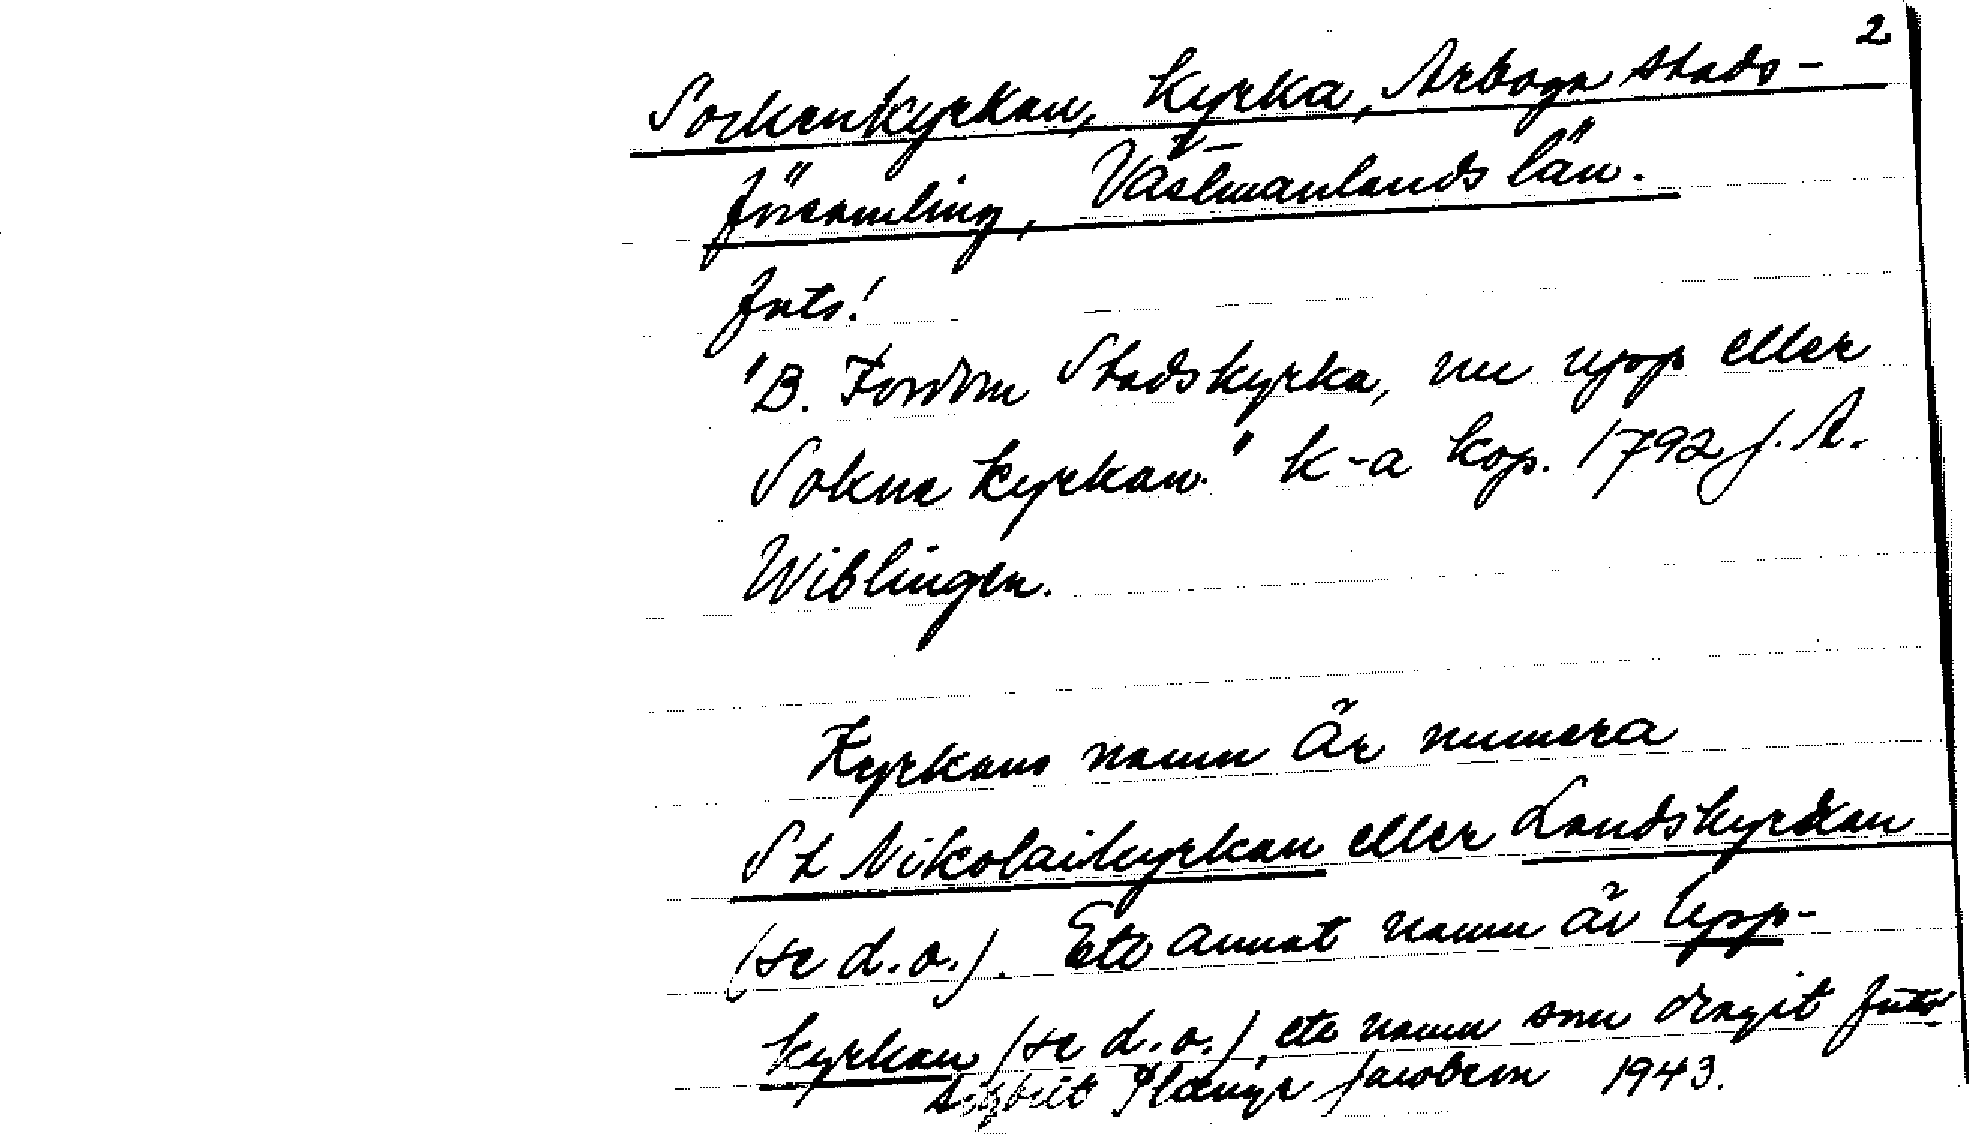 2
Sockenkyrkan, kyrka, Arboga stads-
församling, Västmanlands län.
forts!
"B. Fordom Stadskyrka, nu upp eller
Sokne kyrkan." k-a kop. 1792 f. A.
Wiblingen.
Kyrkans namn är numera
St Nikolaikyrkan eller Landskyrkan
(se d.o.). Ett annat namn är Upp-
kyrkan (se d.o.), ett namn som dragit forts
Jacobson 1943.